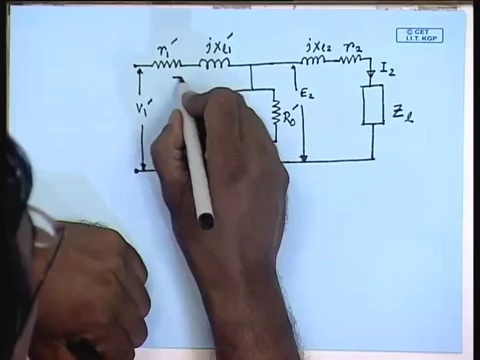 © CET
I.I.T. KGP
r₁′ jxℓ₁′ jxℓ₂ r₂
I₂
V₁′ E₂ R₀′ Zℓ